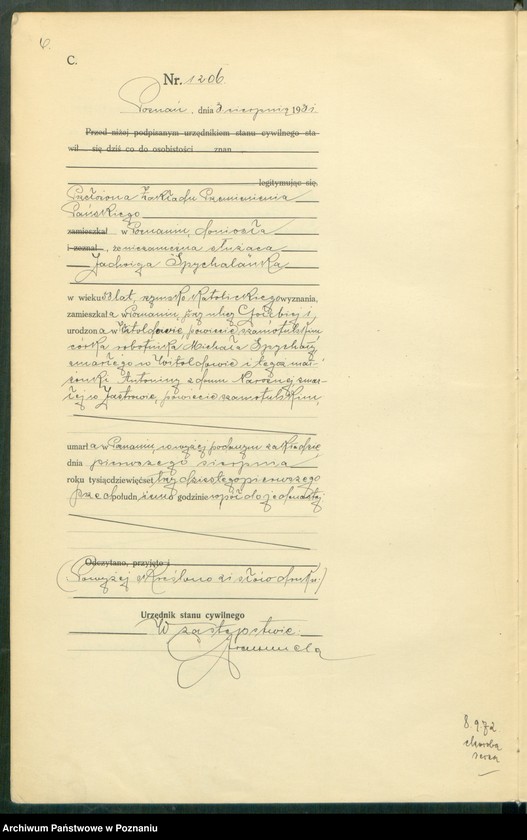 C.
Nr. 1206
Poznań, dnia 3 sierpnia 1931
Przed niżej podpisanym urzędnikiem stanu cywilnego sta-
wił się dziś co do osobistości znan
legitymując się,
Przełożona Zakładu Przemienienia
Pańskiego
zamieszkał w Poznaniu, doniosła
i zeznał, że niezamężna służąca
Jadwiga Spychalanka
w wieku lat, rzymsko katolickiego wyznania,
zamieszkała w Poznaniu, przy ulicy
urodzona w Witoldowie, powiecie szamotulskim
córka robotnika Michała
zmarłego w Witoldowie i tegoż mał-
żonki Antoniny z domu zmar-
łej w powiecie szamotulskim,
umarła w Poznaniu, w wyżej podanym zakładzie
dnia pierwszego sierpnia
roku tysiącdziewięćset trzydziestego pierwszego
przed południu o godzinie wpół do jedenastej
Odczytano, przyjęto i
(Powyżej skreślono słów druku.)
Urzędnik stanu cywilnego
W zastępstwie:
8.972
choroba
serca
Archiwum Państwowe w Poznaniu